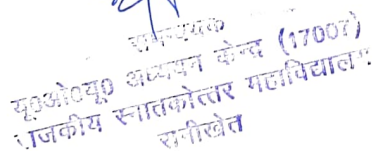 समन्वयक
यू०ओ०यू० अध्ययन केन्द्र (17007)
राजकीय स्नातकोत्तर महाविद्यालय
रानीखेत